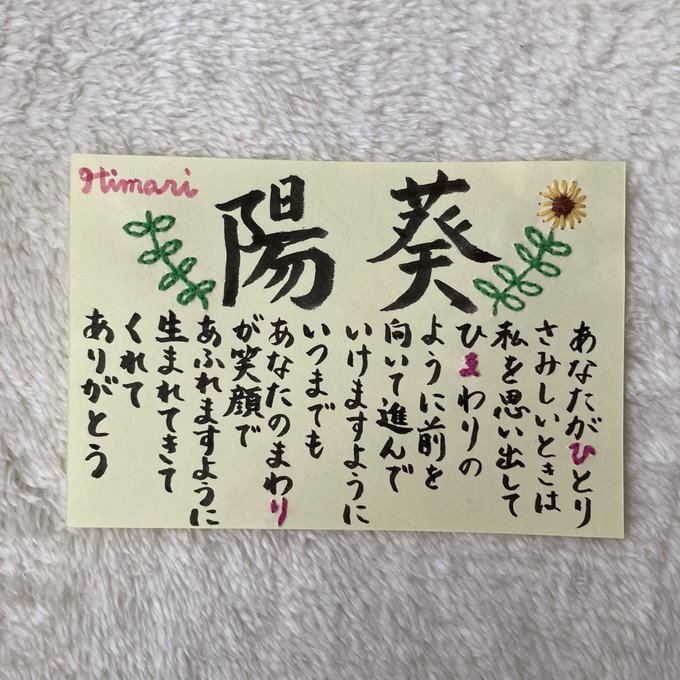 Himari
陽葵
あなたがひとり
さみしいときは
私を思い出して
ひまわりの
ように前を
向いて進んで
いけますように
いつまでも
あなたのまわり
が笑顔で
あふれますように
生まれてきて
くれて
ありがとう